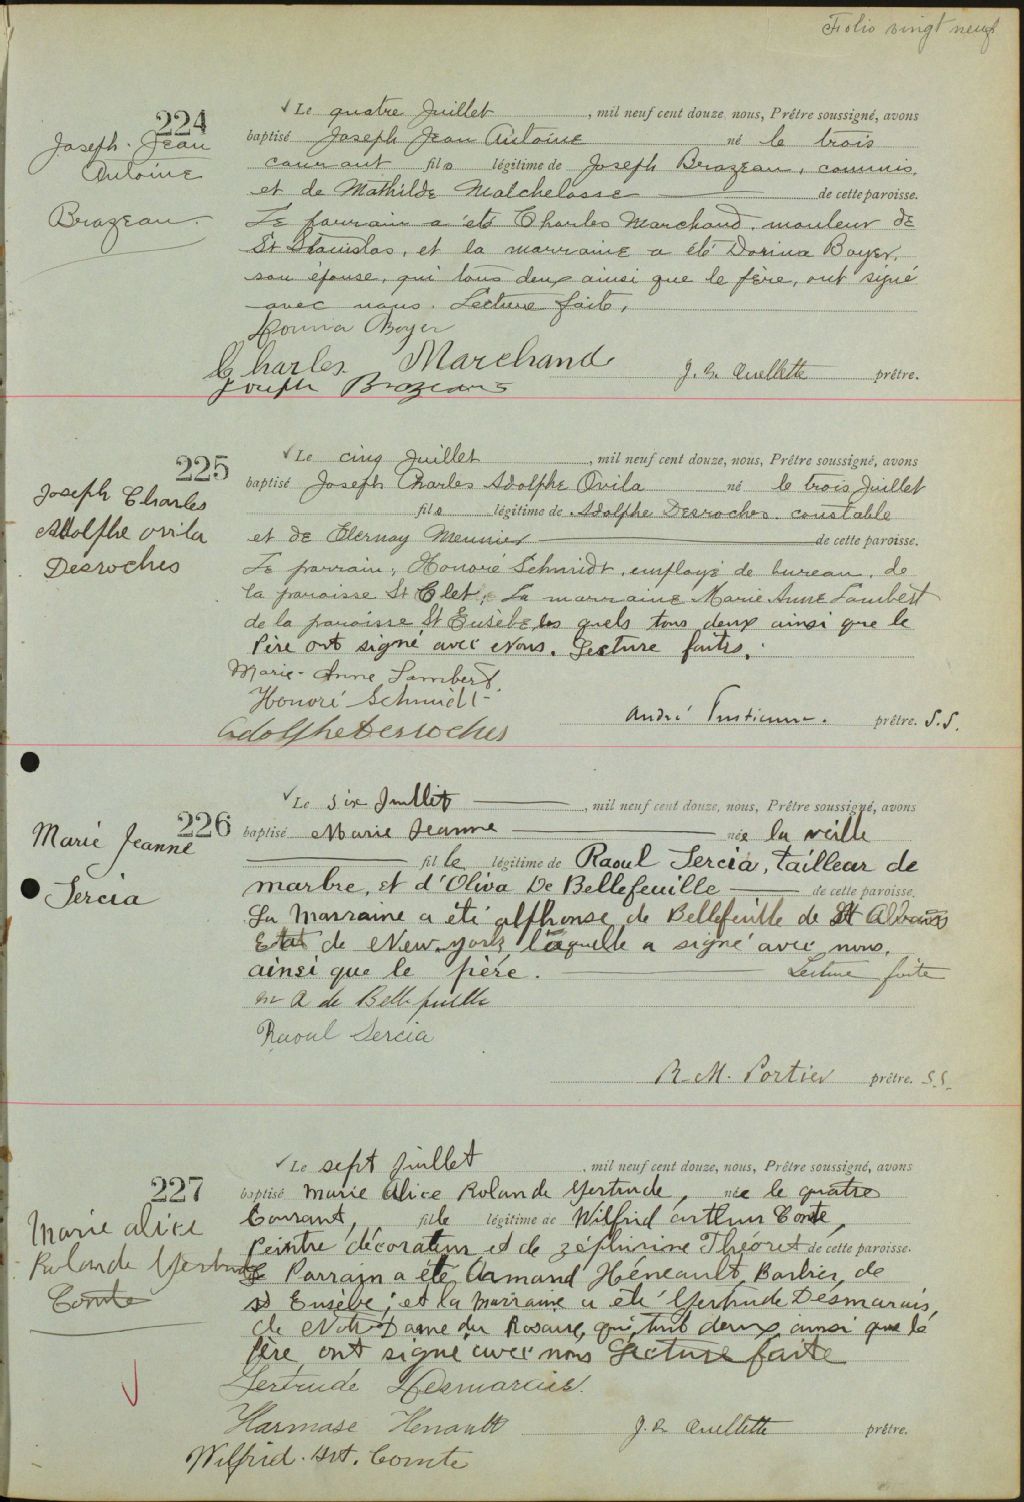 Folio vingt neuf
224
Joseph. Jean
Antoine
Brazeau.
Le quatre Juillet, mil neuf cent douze, nous, Prêtre soussigné, avons
baptisé Joseph Jean Antoine né le trois
courant fils légitime de Joseph Brazeau, commis,
et de Mathilde Malchelosse de cette paroisse.
Le parrain a été Charles Marchand, mouleur de
St Stanislas, et la marraine a été Dorina Boyer,
son épouse, qui tous deux ainsi que le père, ont signé
avec nous. Lecture faite,
Dorina Boyer
Charles Marchand
J. B. Ouellette prêtre.
Joseph Brazeau
225
Joseph Charles
Adolphe Ovila
Desroches
Le cinq Juillet, mil neuf cent douze, nous, Prêtre soussigné, avons
baptisé Joseph Charles Adolphe Ovila né le trois Juillet
fils légitime de Adolphe Desroches, constable
et de Meunier de cette paroisse.
Le parrain, Honoré Schmidt, employé de bureau, de
la paroisse St Clet, La marraine Marie Anne Lambert
de la paroisse St Eusèbe, les quels tous deux ainsi que le
Père ont signé avec Nous. Lecture faite.
Marie-Anne Lambert
Honoré Schmidt
Adolphe Desroches
André prêtre. S.S.
226
Marie Jeanne
Sercia
Le six Juillet, mil neuf cent douze, nous, Prêtre soussigné, avons
baptisé Marie Jeanne née la veille
fille légitime de Raoul Sercia, tailleur de
marbre, et d'Oliva De Bellefeuille de cette paroisse.
La Marraine a été alphonse de Bellefeuille de St Albans
Etat de New-York, laquelle a signé avec nous,
ainsi que le père. Lecture faite
A de Bellefeuille
Raoul Sercia
R. M. Portier prêtre. S.S.
227
Marie alice
Rolande Gertrude
Comte
Le sept Juillet, mil neuf cent douze, nous, Prêtre soussigné, avons
baptisé Marie Alice Rolande Gertrude, née le quatre
Courant, fille légitime de Wilfrid arthur Comte,
Peintre décorateur et de Zéphirine Théoret de cette paroisse.
Le Parrain a été Armand Héneault, Barbier, de
St Eusèbe; et la marraine a été Gertrude Desmarais,
de Notre Dame du Rosaire, qui tous deux ainsi que le
père ont signé avec nous Lecture faite
Gertrude Desmarais.
Harmase Henault
J. B. Ouellette prêtre.
Wilfrid. Art. Comte